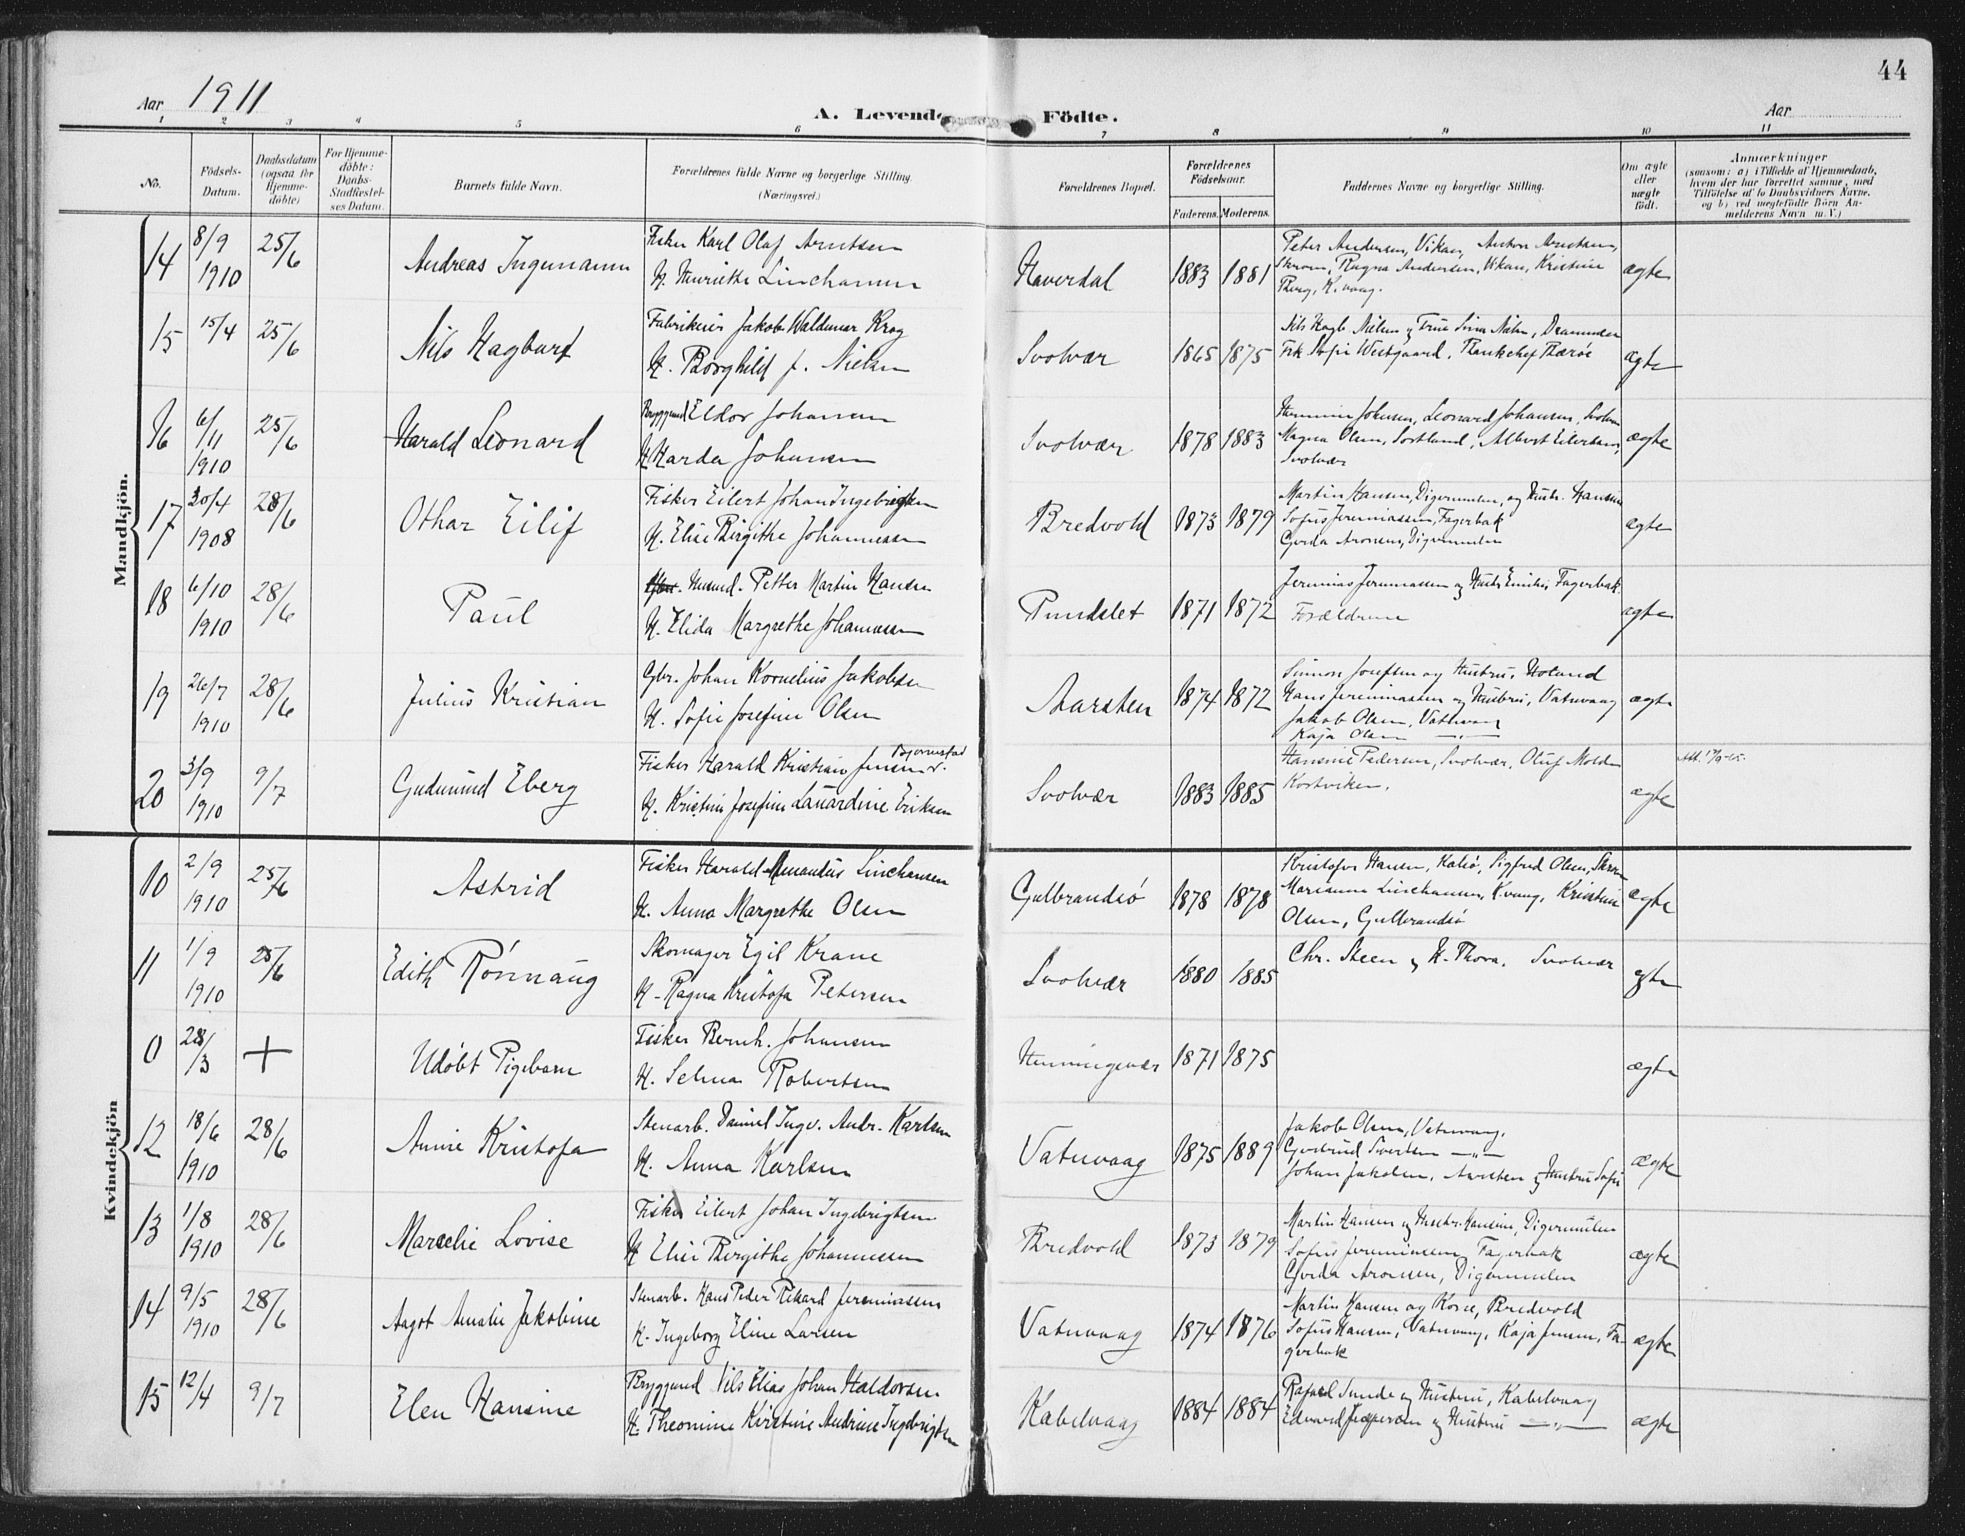 44
Aar 1911
A. Levende Födte.
Aar
1 2 3 4 5 6 7 8 9 10 11
No.
Födsels-Datum.
Daabsdatum (ogsaa for Hjemme-döbte)
For Hjemme-döbte: Daabs-Stadfæstel-ses Datum.
Barnets fulde Navn.
Forældrenes fulde Navne og borgerlige Stilling. (Næringsvei.)
Forældrenes Bopæl.
Forældrenes Födselsaar.
Faderens. Moderens.
Faddernes Navne og borgerlige Stilling.
Om ægte eller uægte födt.
Anmærkninger
(saasom: a) i Tilfælde af Hjemmedaab, hvem der har forrettet samme, med Tilföielse af to Daabsvidners Navne, og b) ved uægtefödte Börn Anmelderens Navn m. V.)
Mandkjön.
14 8/9 1910 25/6 Andreas Ingemann
Fisker Karl Olaf Arntsen
H. Henriette Linchausen
Haverdal 1883 1881
Peter Andersen, Vikan, Anton Arntsen,
Skroven, Ragna Andersen, Vikan, Kristine
Berg, K.vaag.
ægte
15 15/4 25/6 Nils Hagbart
Fabrikeier Jakob Waldemar Krog
H. Borghild f. Nielsen
Svolvær 1865 1875
Nils Hagb. Nielsen og Frue Sina Nielsen, Drammen
Frk Sofie Westgaard, Bankchef Færöe
ægte
16 6/11 1910 25/6 Harald Leonard
Bryggemd Eldor Johansen
H Harda Johansen
Svolvær 1878 1883
Johansen, Leonard Johansen, Svolvær
Magna Olsen, Sortland, Albert Eilertsen,
Svolvær
ægte
17 30/4 1908 28/6 Othar Eilif
Fisker Eilert Johan Ingebrigtsen
H. Elise Birgithe Johannessen
Bredvold 1873 1879
Martin Hansen, Digermulen, og Hustr. Hansine
Sofus Jeremiassen, Fagerbak
Gerda Aronsen, Digermulen
ægte
18 6/10 1910 28/6 Paul
Husmd. Petter Martin Hansen
H. Elida Margrethe Johannessen
Pundslet 1871 1872
Jeremias Jeremiassen og Hustr Emilie, Fagerbak
Forældrene
ægte
19 26/7 1910 28/6 Julius Kristian
Gbr. Johan Kornelius Jakobsen
H. Sofie Josefine Olsen
Aarsten 1874 1872
Simon Josefsen og Hustru, Holand
Hans Jeremiassen og Hustru, Vatnvaag
Jakob Olsen, Vatnvaag
Kaja Olsen —"—
ægte
20 3/9 1910 9/7 Gudmund Eberg
Fisker Harald Kristian Jensen
H. Kristine Josefine Lauardine Eriksen
Svolvær 1883 1885
Hansine Pedersen, Svolvær, Oluf Molden
Kortviken.
ægte
Kvindekjön
10 2/9 1910 25/6 Astrid
Fisker Harald Amandus Linchausen
H. Anna Margrethe Olsen
Gulbrandsö 1878 1878
Kristofer Hansen, Kalsö, Sigfred Olsen, Skroven
Marianne Linchausen, K.vaag, Kristine
Olsen, Gulbrandsö
ægte
11 1/9 1910 25/6 Edith Rönnaug
Skomager Egil Krane
H - Ragna Kristofa Petersen
Svolvær 1880 1885
Chr. Steen og H. Thora. Svolvær
ægte
0 28/3 + Udöbt Pigebarn
Fisker Bernh. Johansen
H. Selma Robertsen
Henningsvær 1871 1875
ægte
12 18/6 1910 28/6 Annie Kristofa
Stenarb. Daniel Ingv. Andr. Karlsen
H. Anna Karlsen
Vatnvaag 1875 1889
Jakob Olsen, Vatnvaag.
Gertrud Sivertsen —"—
Johan Jakobsen, Aarsten og Hustru Sofie
ægte
13 1/8 1910 28/6 Marselie Lovise
Fisker Eilert Johan Ingebrigtsen
H Elise Birgithe Johannessen
Bredvold 1873 1879
Martin Hansen og Hustr. Hansine, Digermulen
Sofus Jeremiassen, Fagerbak
Gerda Aronsen, Digermulen
ægte
14 9/5 1910 28/6 Aagot Amalie Jakobine
Stenarb. Hans Peder Rikard Jeremiassen
H. Ingeborg Eline Larsen
Vatnvaag 1874 1876
Martin Hansen og Kone, Bredvold
Sofus Hansen, Vatnvaag, Kaja Jensen, Fa-
gerbak
ægte
15 12/4 9/7 Elen Hansine
Bryggemd Nils Elias Johan Haldorsen
H. Theomine Kirstine Andrine Ingebrigtsen
Kabelvaag 1884 1884
Rafael Sunde og Hustru, Kabelvaag
Edvard Jespersen og Hustru —"—
ægte